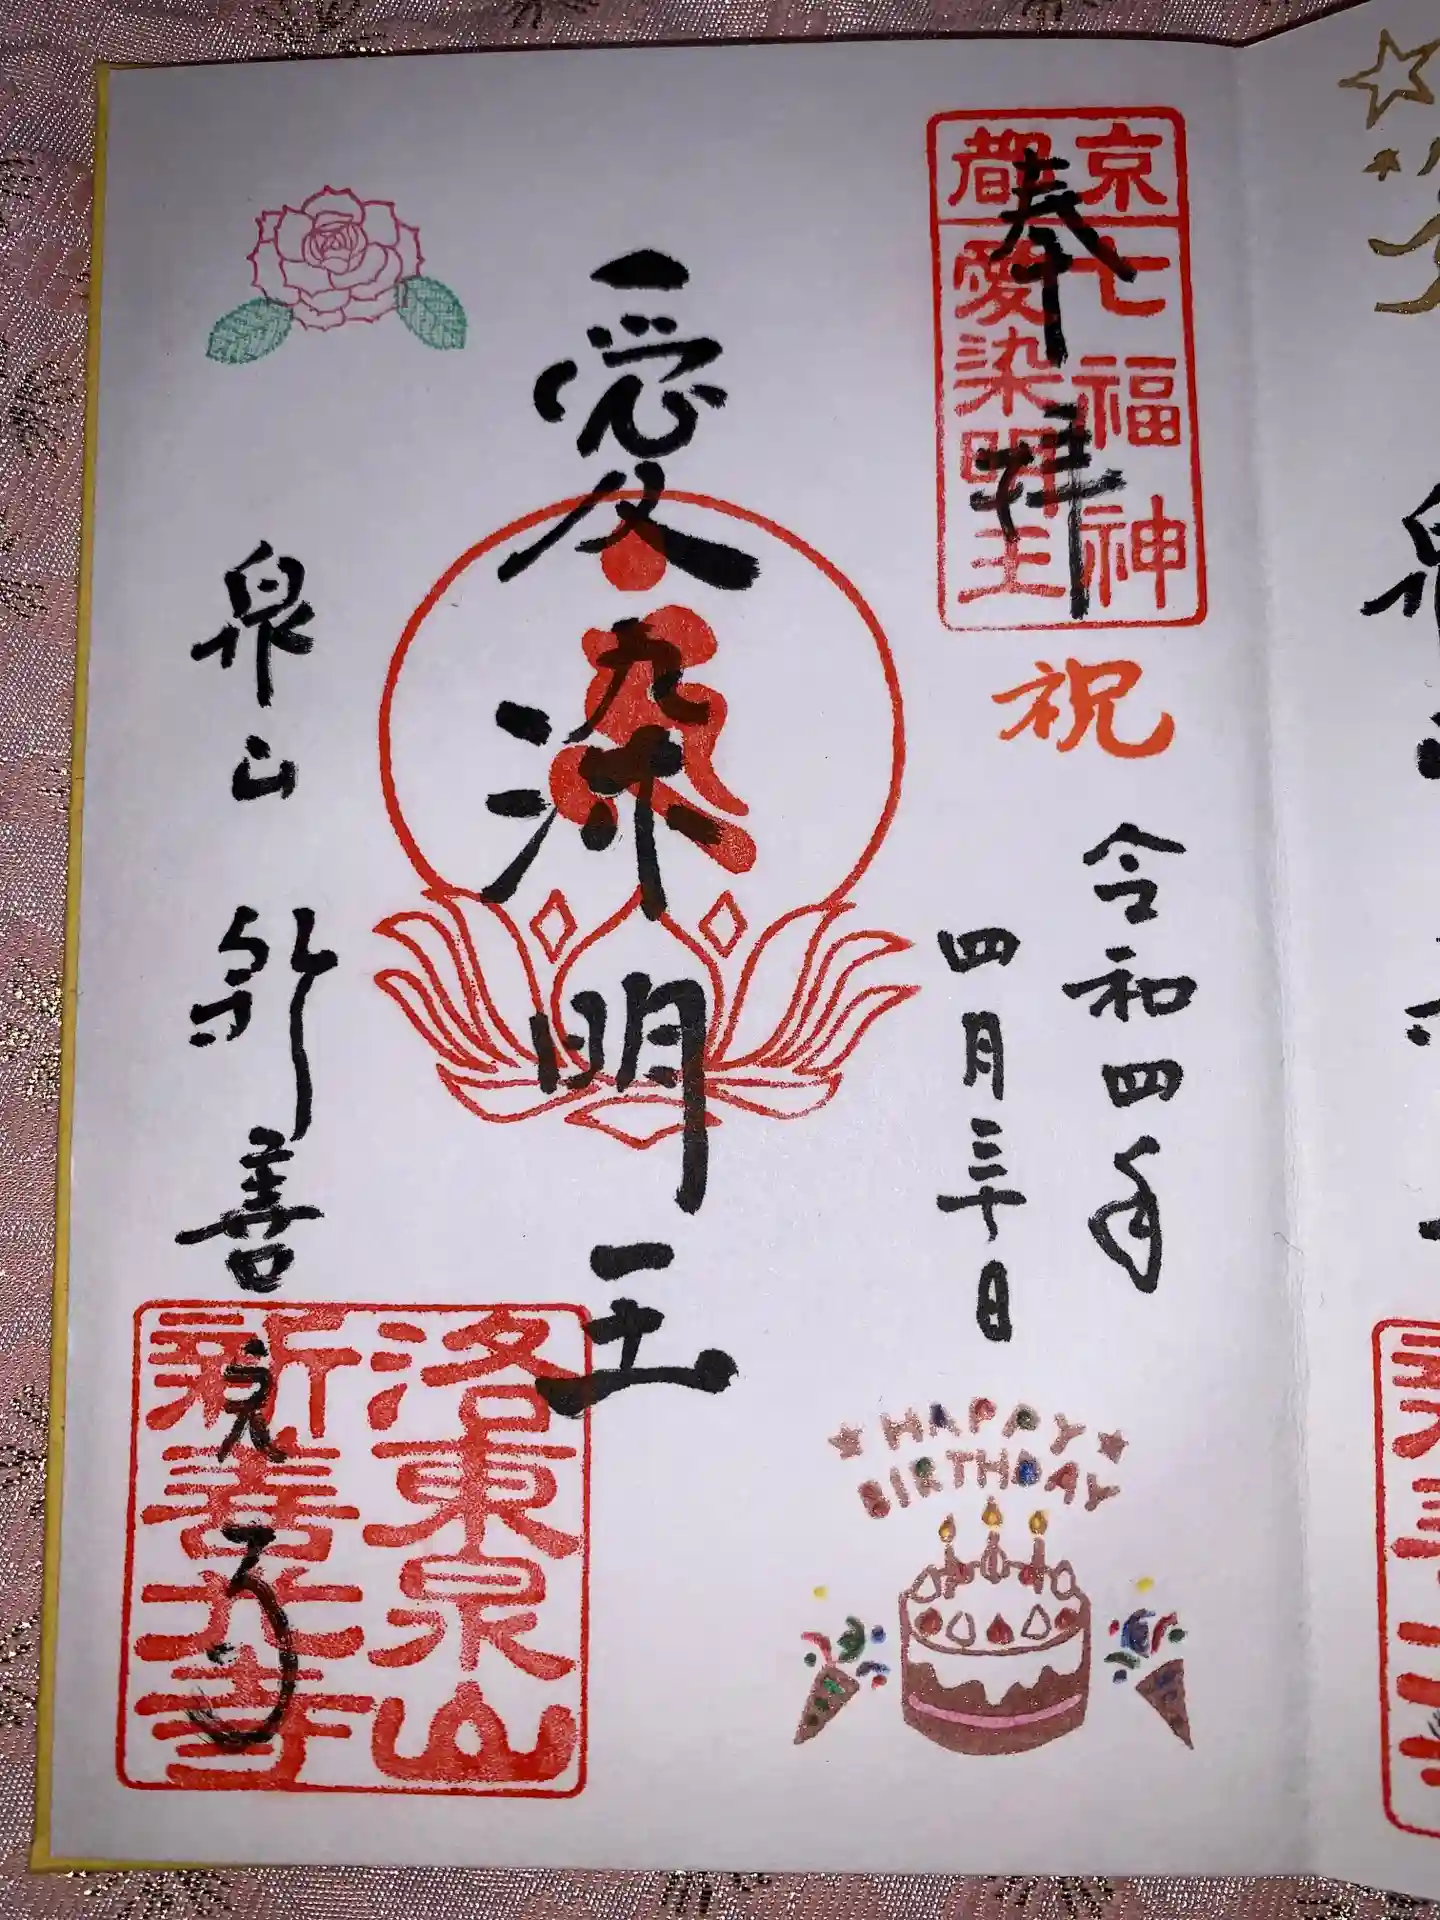 奉拝
京都
七福神
愛染明王
祝
令和四年
四月三十日
愛染明王
泉山 新善光寺
洛東泉山
新善光寺
HAPPY
BIRTHDAY